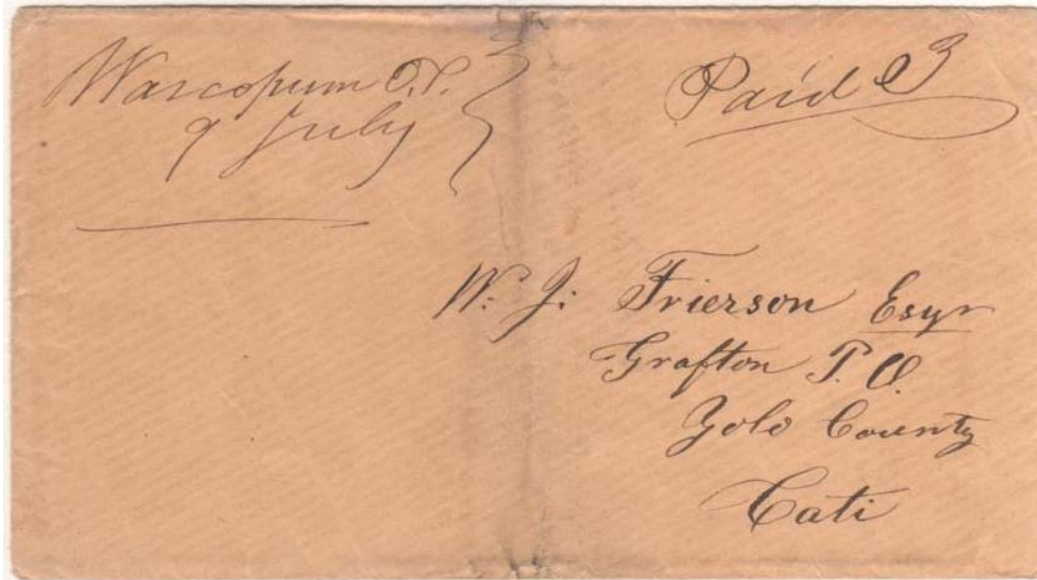 Wascopum O.T.
9 July
Paid 3
W. J. Frierson Esqr
Grafton P. O.
Yolo County
Cali